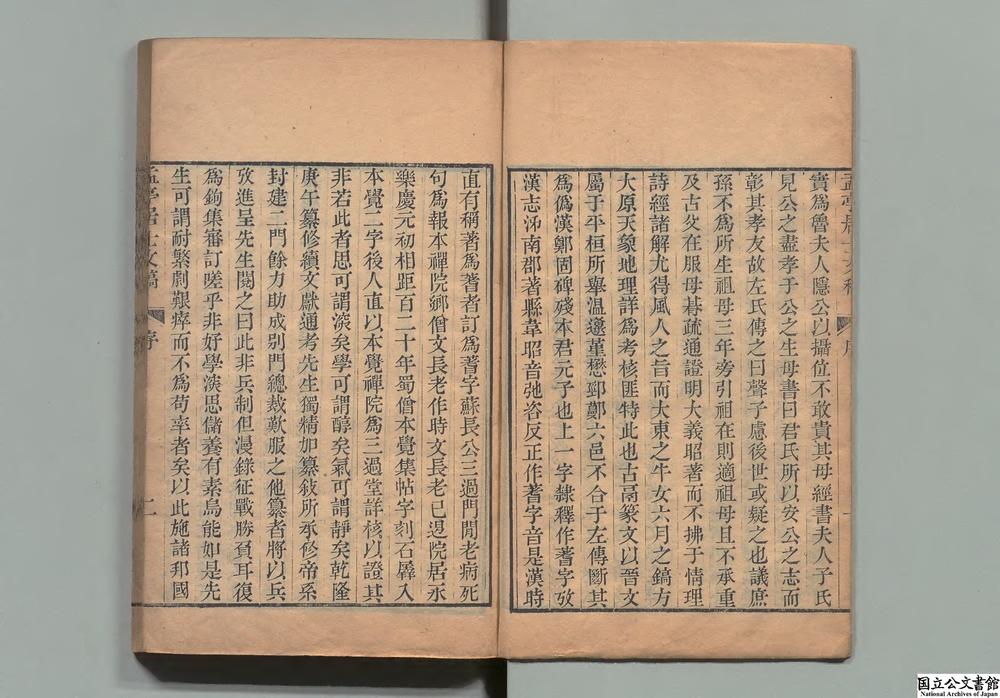 實爲魯夫人隱公以攝位不敢貴其母經書夫人子氏
見公之盡孝于公之生母書曰君氏所以安公之志而
彰其孝友故左氏傳之曰聲子慮後世或疑之也議庶
孫不爲所生祖母三年旁引祖在則適祖母且不承重
及古攵在服母朞疏通證明大義昭著而不拂于情理
詩經諸解尤得風人之旨而大東之牛女六月之鎬方
大原天象地理詳爲考核匪特此也古鬲篆文以晉文
屬于平桓所舉溫邍堇懋郅鄭六邑不合于左傳斷其
爲僞漢鄭固碑殘本君元子也上一字隸釋作蓍字攷
漢志沛南郡著縣韋昭音弛咨反正作蓍字音是漢時
直有稱著爲蓍者訂爲蓍字蘇長公三過門閒老病死
句爲報本禪院鄉僧文長老作時文長老已退院居永
樂慶元初相距百二十年蜀僧本覺集帖字刻石羼入
本覺二字後人直以本覺禪院爲三過堂詳核以證其
非若此者思可謂深矣學可謂醇矣氣可謂靜矣乾隆
庚午纂修續文獻通考先生獨精加纂敍所承修帝系
封建二門餘力助成別門總裁歎服之他纂者將以兵
攷進呈先生閱之曰此非兵制但漫錄征戰勝負耳復
爲鉤集審訂嗟乎非好學深思儲養有素烏能如是先
生可謂耐繁劇艱瘁而不爲苟率者矣以此施諸邦國
孟亭居士文稿
序
二
国立公文書館
National Archives of Japan